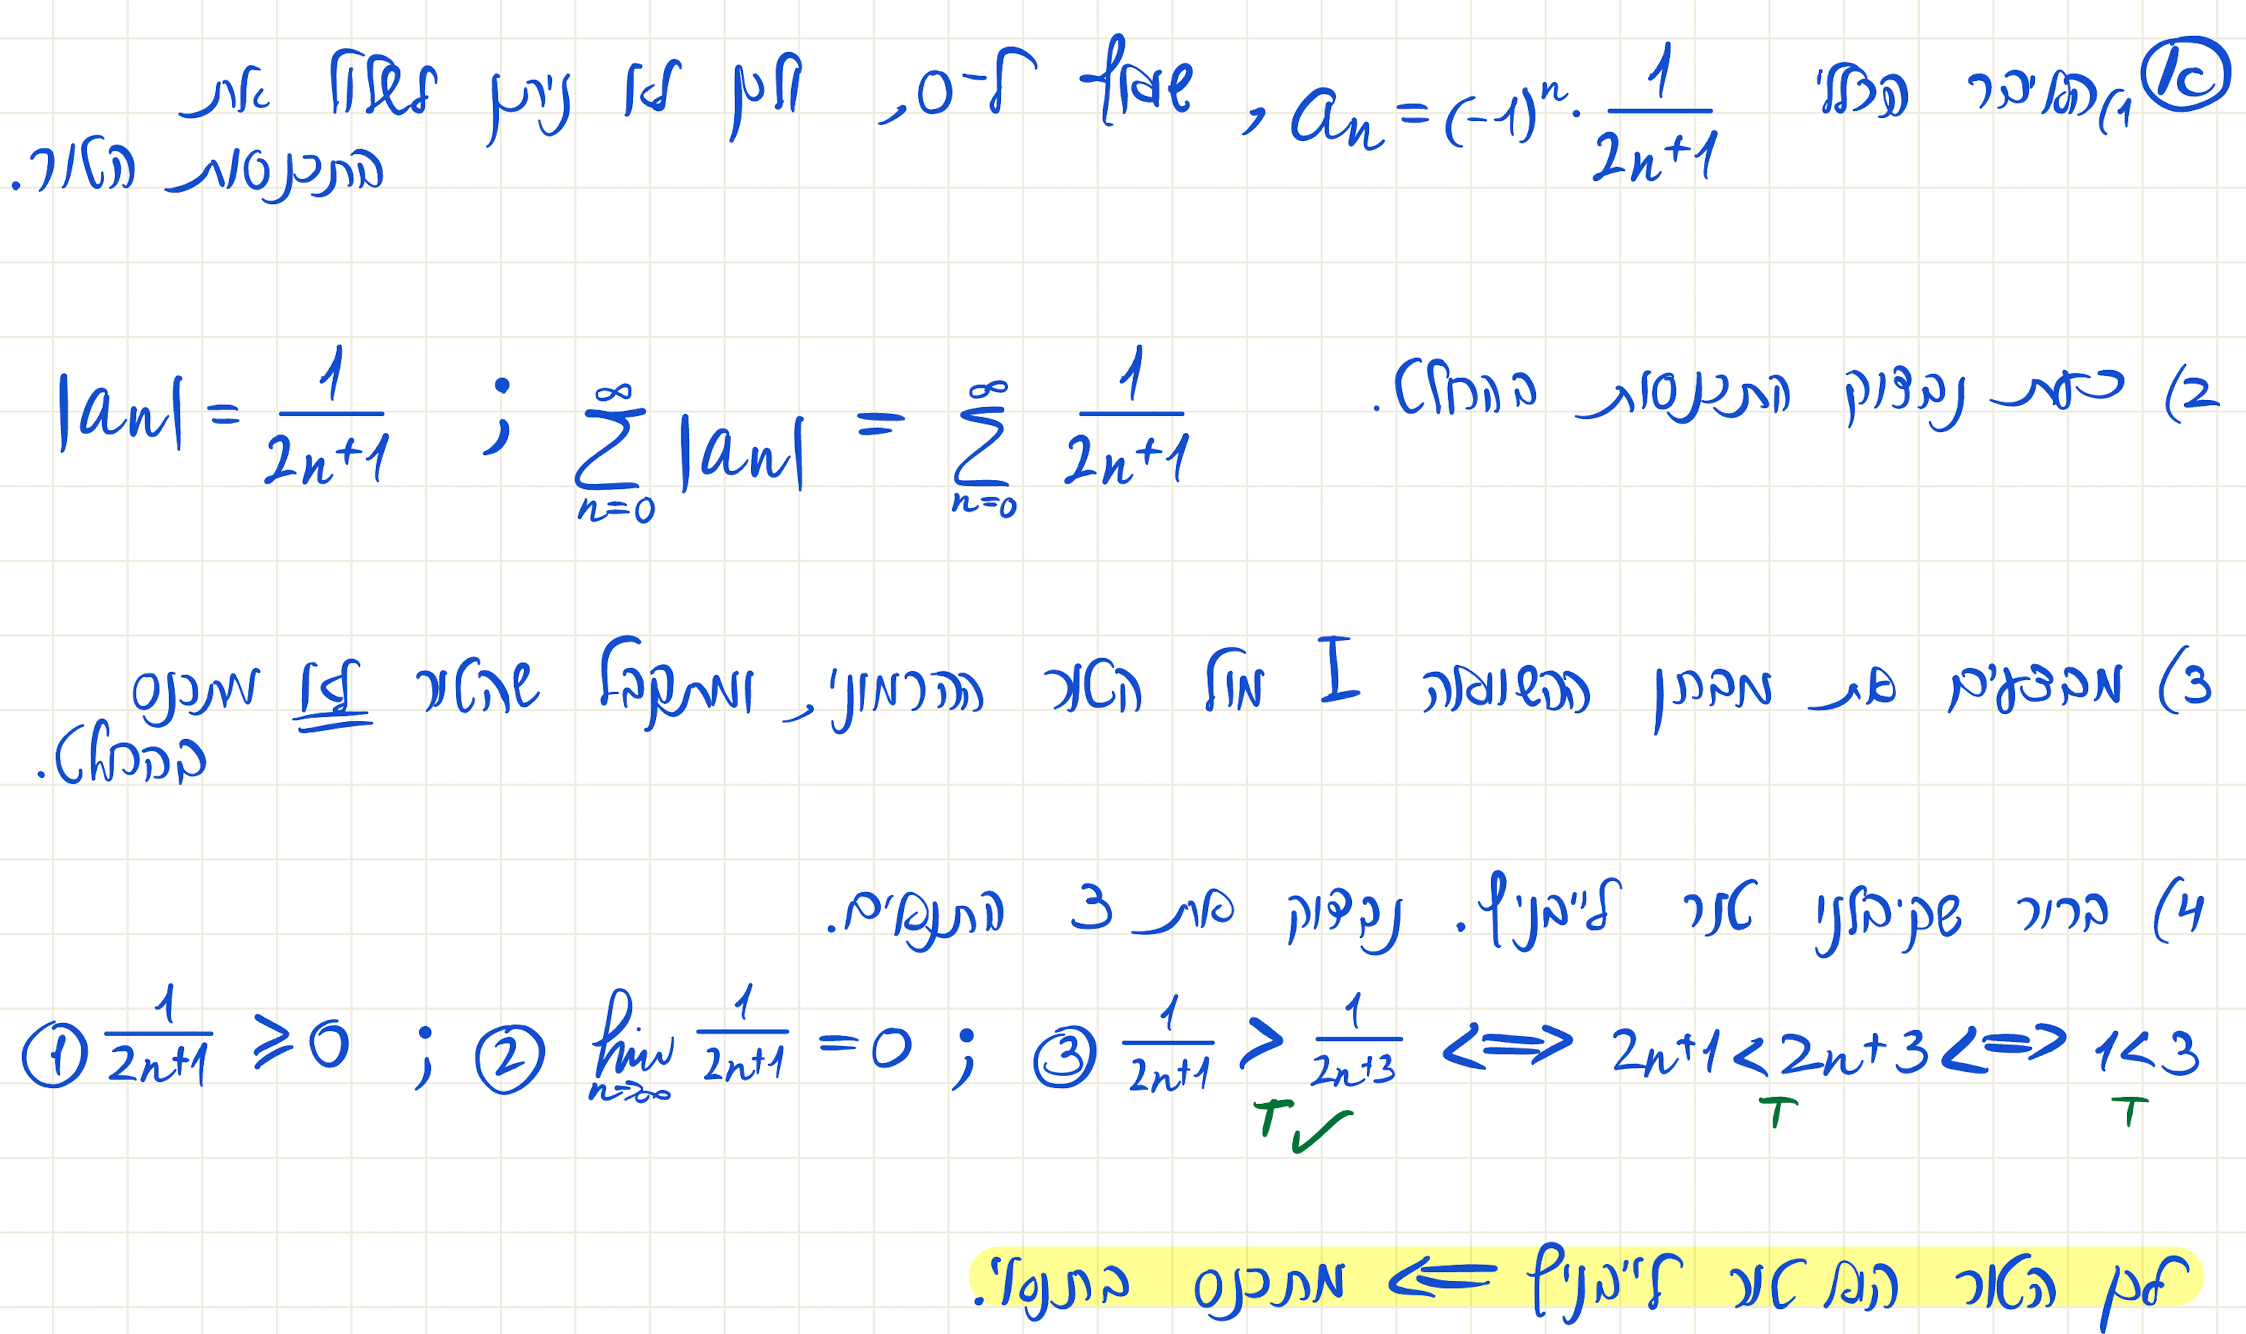 (א) 1) האיבר הכללי a_n = (-1)^n · 1/(2n+1), שואף ל-0, ולכן לא ניתן לשלול את
התכנסות הטור.
2) כעת נבדוק התכנסות בהחלט. \sum_{n=0}^{∞} |a_n| = \sum_{n=0}^{∞} 1/(2n+1) ; |a_n| = 1/(2n+1)
3) מבצעים את מבחן ההשוואה I מול הטור ההרמוני, ומתקבל שהטור לא מתכנס
בהחלט.
4) ברור שקיבלנו טור לייבניץ. נבדוק את 3 התנאים.
① 1/(2n+1) ⩾ 0 ; ② lim_{n→∞} 1/(2n+1) = 0 ; ③ 1/(2n+1) > 1/(2n+3) <=> 2n+1 < 2n+3 <=> 1 < 3
T ✓ T T
לכן הטור הוא טור לייבניץ <= מתכנס בתנאי.